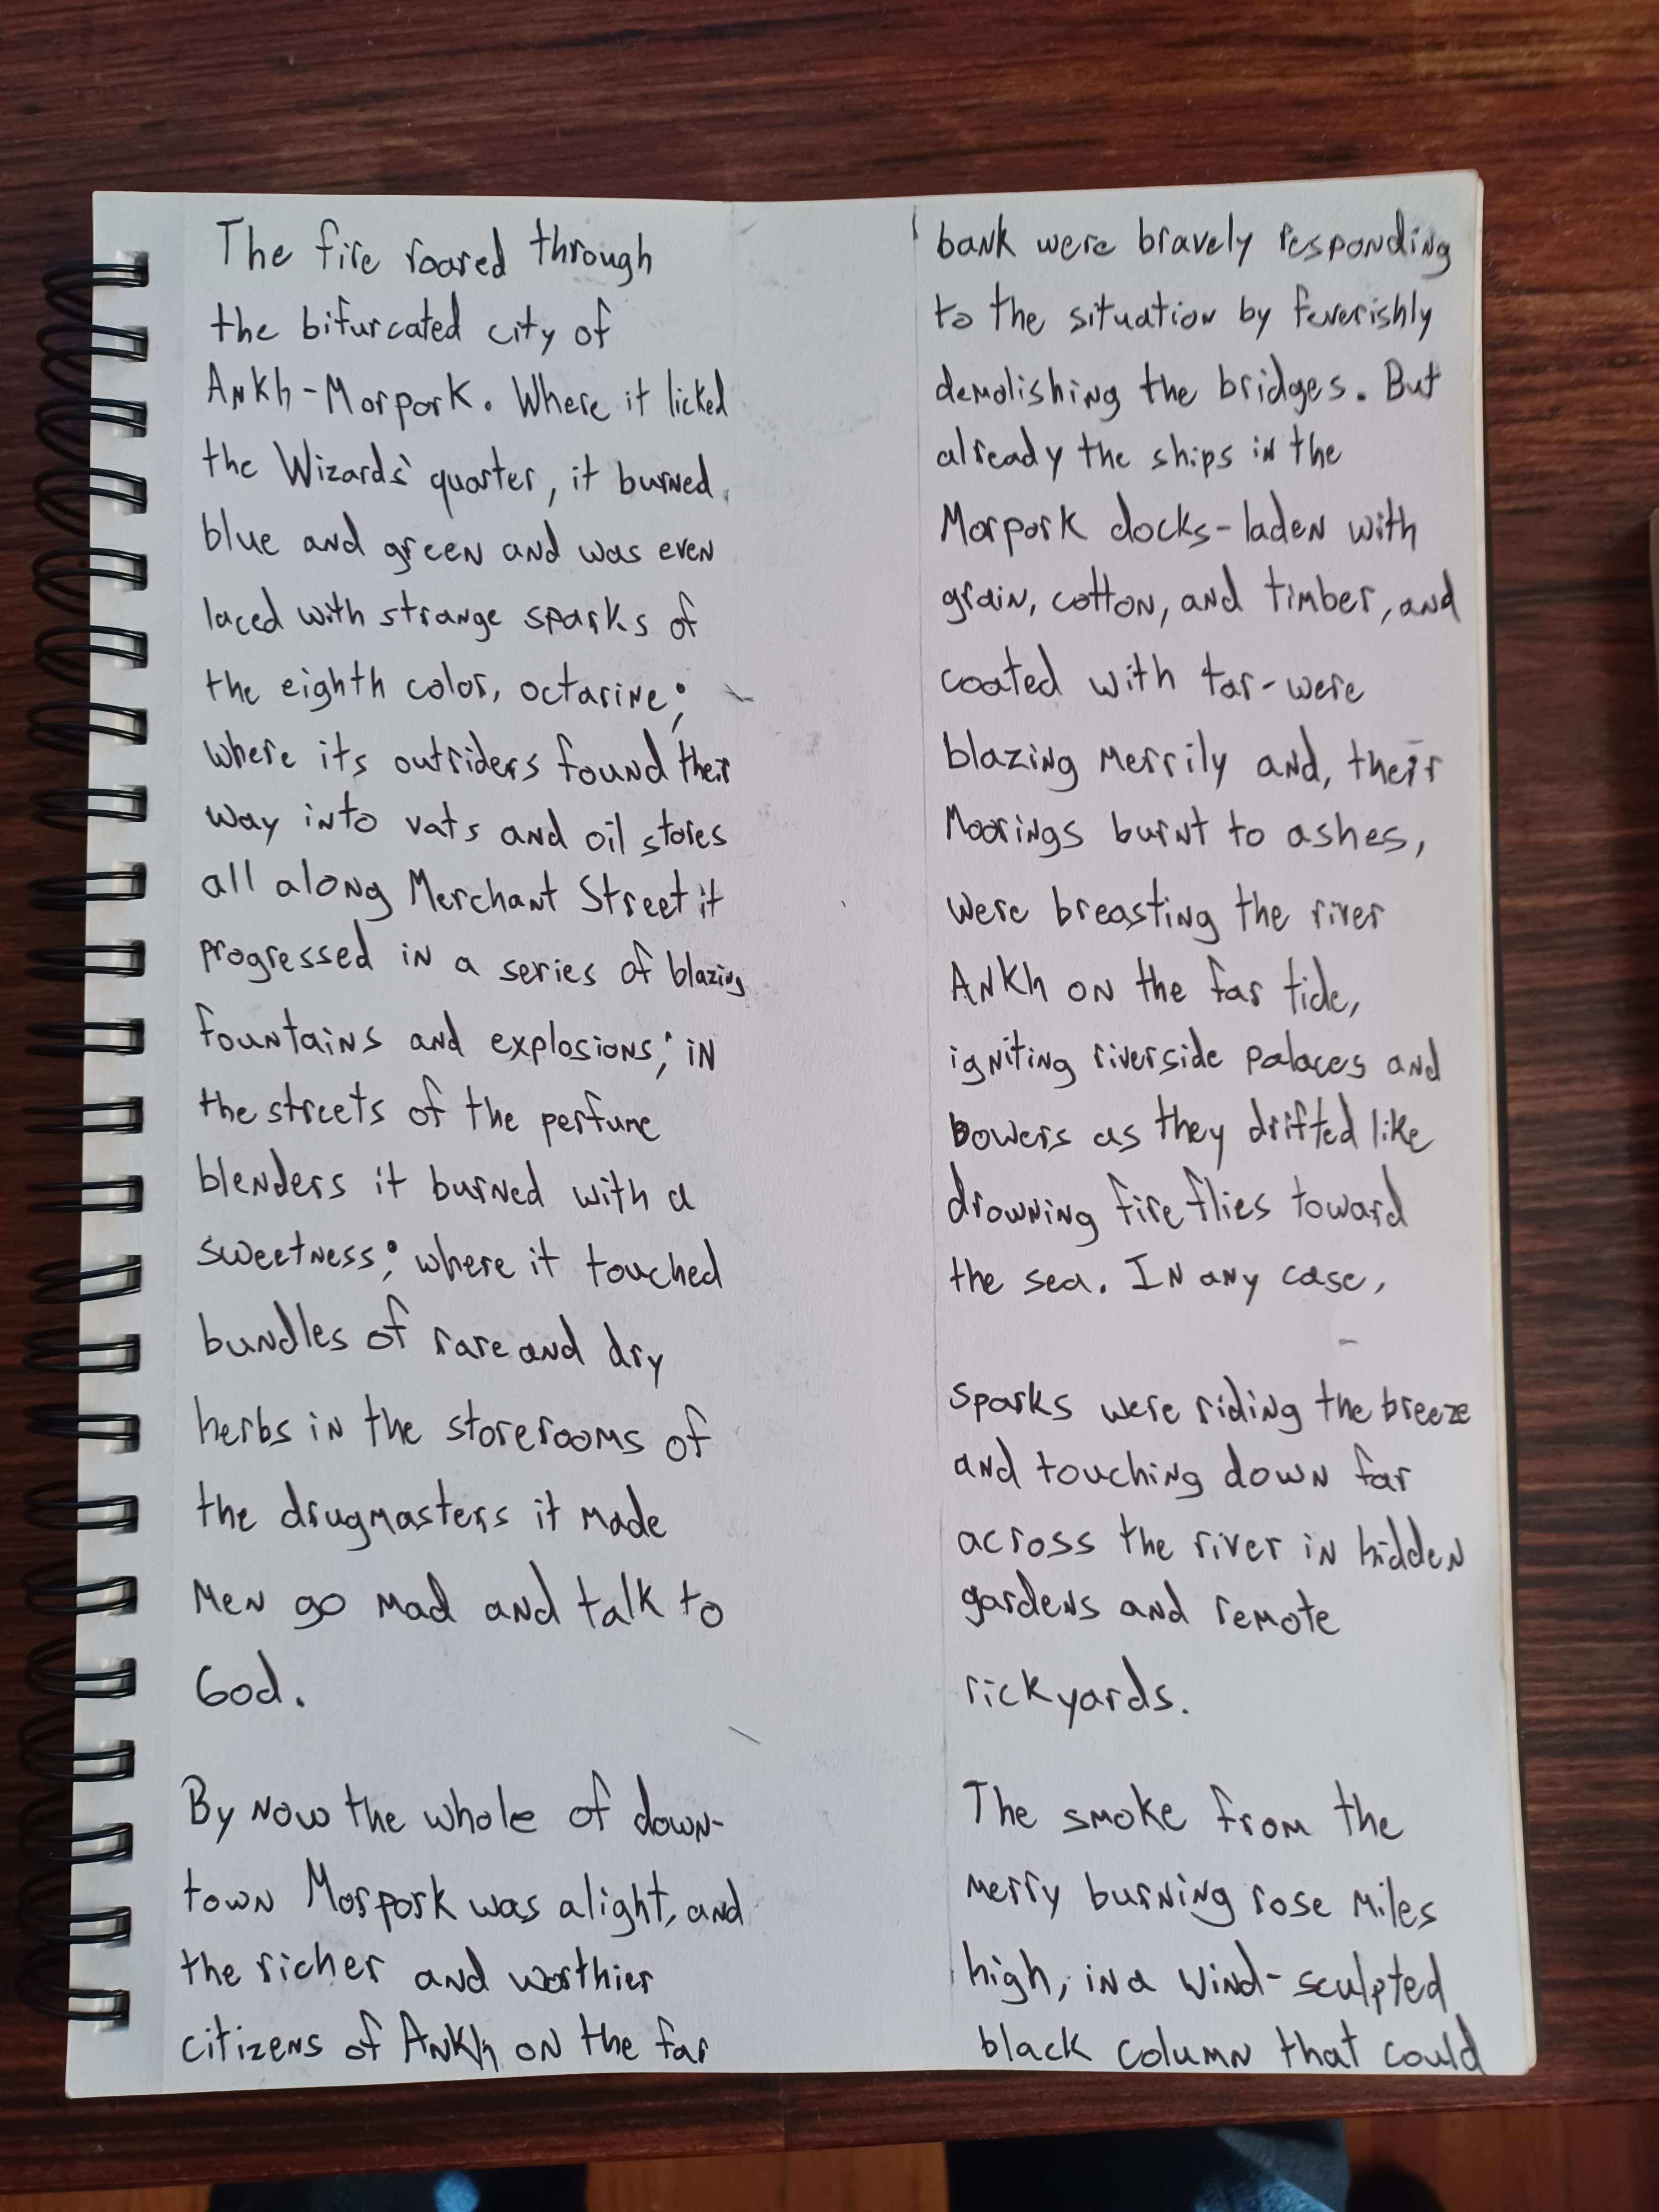 The fire roared through
the bifurcated city of
Ankh-Morpork. Where it licked
the Wizards' quarter, it burned
blue and green and was even
laced with strange sparks of
the eighth color, octarine;
where its outriders found their
way into vats and oil stores
all along Merchant Street it
progressed in a series of blazing
fountains and explosions; in
the streets of the perfume
blenders it burned with a
sweetness; where it touched
bundles of rare and dry
herbs in the storerooms of
the drugmasters it made
men go mad and talk to
God.
By now the whole of down-
town Morpork was alight, and
the richer and worthier
citizens of Ankh on the far
bank were bravely responding
to the situation by feverishly
demolishing the bridges. But
already the ships in the
Morpork docks-laden with
grain, cotton, and timber, and
coated with tar-were
blazing merrily and, their
moorings burnt to ashes,
were breasting the river
Ankh on the far tide,
igniting riverside palaces and
bowers as they drifted like
drowning fireflies toward
the sea. In any case,
sparks were riding the breeze
and touching down far
across the river in hidden
gardens and remote
rickyards.
The smoke from the
merry burning rose miles
high, in a wind-sculpted
black column that could